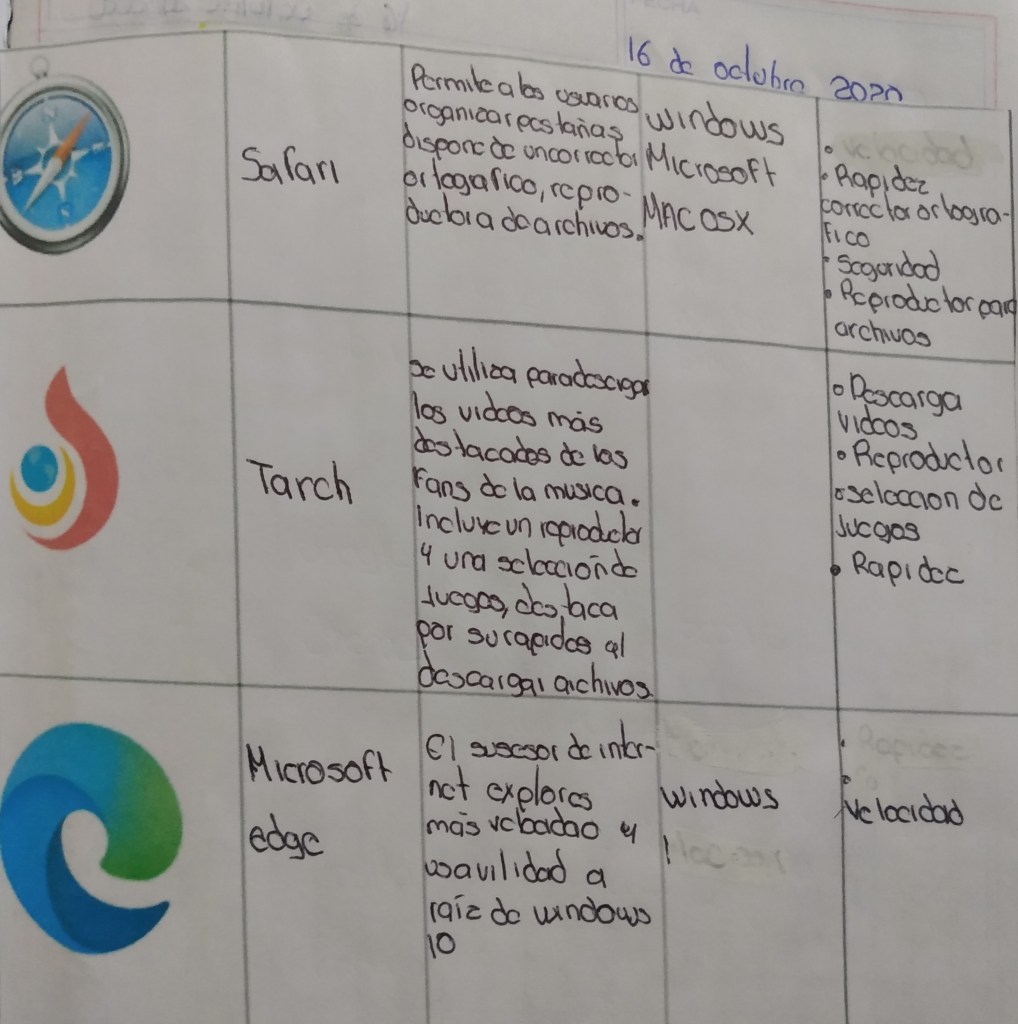 16 de octubre 2020
Safari
Permite a los usuarios
organizar pestañas
dispone de un corrector
ortografico, repro-
ductora de archivos.
windows
Microsoft
MAC OSX
• velocidad
• Rapidez
corrector ortogra-
fico
• Seguridad
• Reproductor para
archivos
Tarch
se utiliza para descigar
los videos más
destacados de las
fans de la musica.
Incluye un reproductor
y una selección de
Juegos, destaca
por su rapides al
descargar archivos
• Descarga
videos
• Reproductor
• seleccion de
Juegos
• Rapidec
Microsoft
edge
El susesor de inter-
net explores
más velocidad y
usavilidad a
raíz de windows
10
windows
• Rapidez
•
velocidad